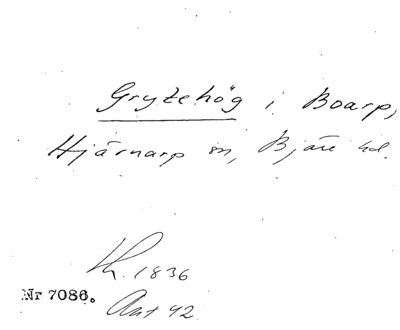 Grytehög i Boarp,
Hjärnarp sn, Bjäre hd.
Kh. 1836
Nr 7086. Ant 42